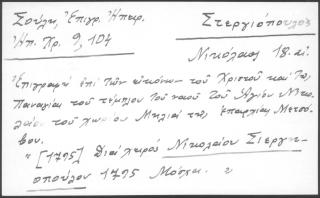 Σούλη, Ἐπιγρ. Ἠπειρ.
Ἠπ. Χρ. 9, 104
Στεργιόπουλος
Νικόλαος 18. αἰ
Ἐπιγραφὴ ἐπὶ τῶν εἰκόνων τοῦ Χριστοῦ καὶ τῆς
Παναγίας τοῦ τέμπλου τοῦ ναοῦ τοῦ Ἁγίου Νικο
λάου τοῦ χωρίου Μηλιαὶ τῆς ἐπαρχίας Μετσό
βου.
" [1795] Διὰ χειρὸς Νικολαίου Στεργιο
πούλου 1795 Μόσχα. "